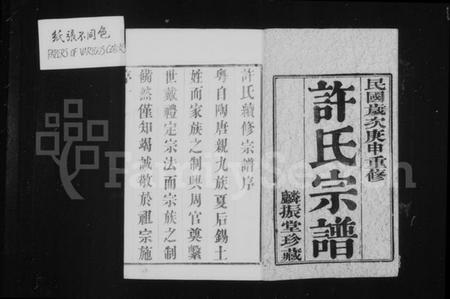 紙張不同色
PAPERS OF VARIOUS COLORS
民國歲次庚申重修
許氏宗譜
麟振堂珍藏
許氏續修宗譜序
粵自陶唐親九族夏后錫土
姓而家族之制興周官奠繫
世戴禮定宗法而宗族之制
備然僅知竭誠敬於祖宗施
序
FamilySearch